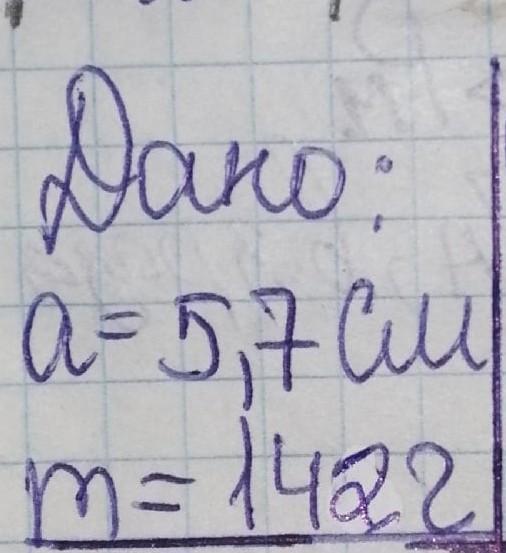 Дано:
a = 5,7 см
m = 142 г